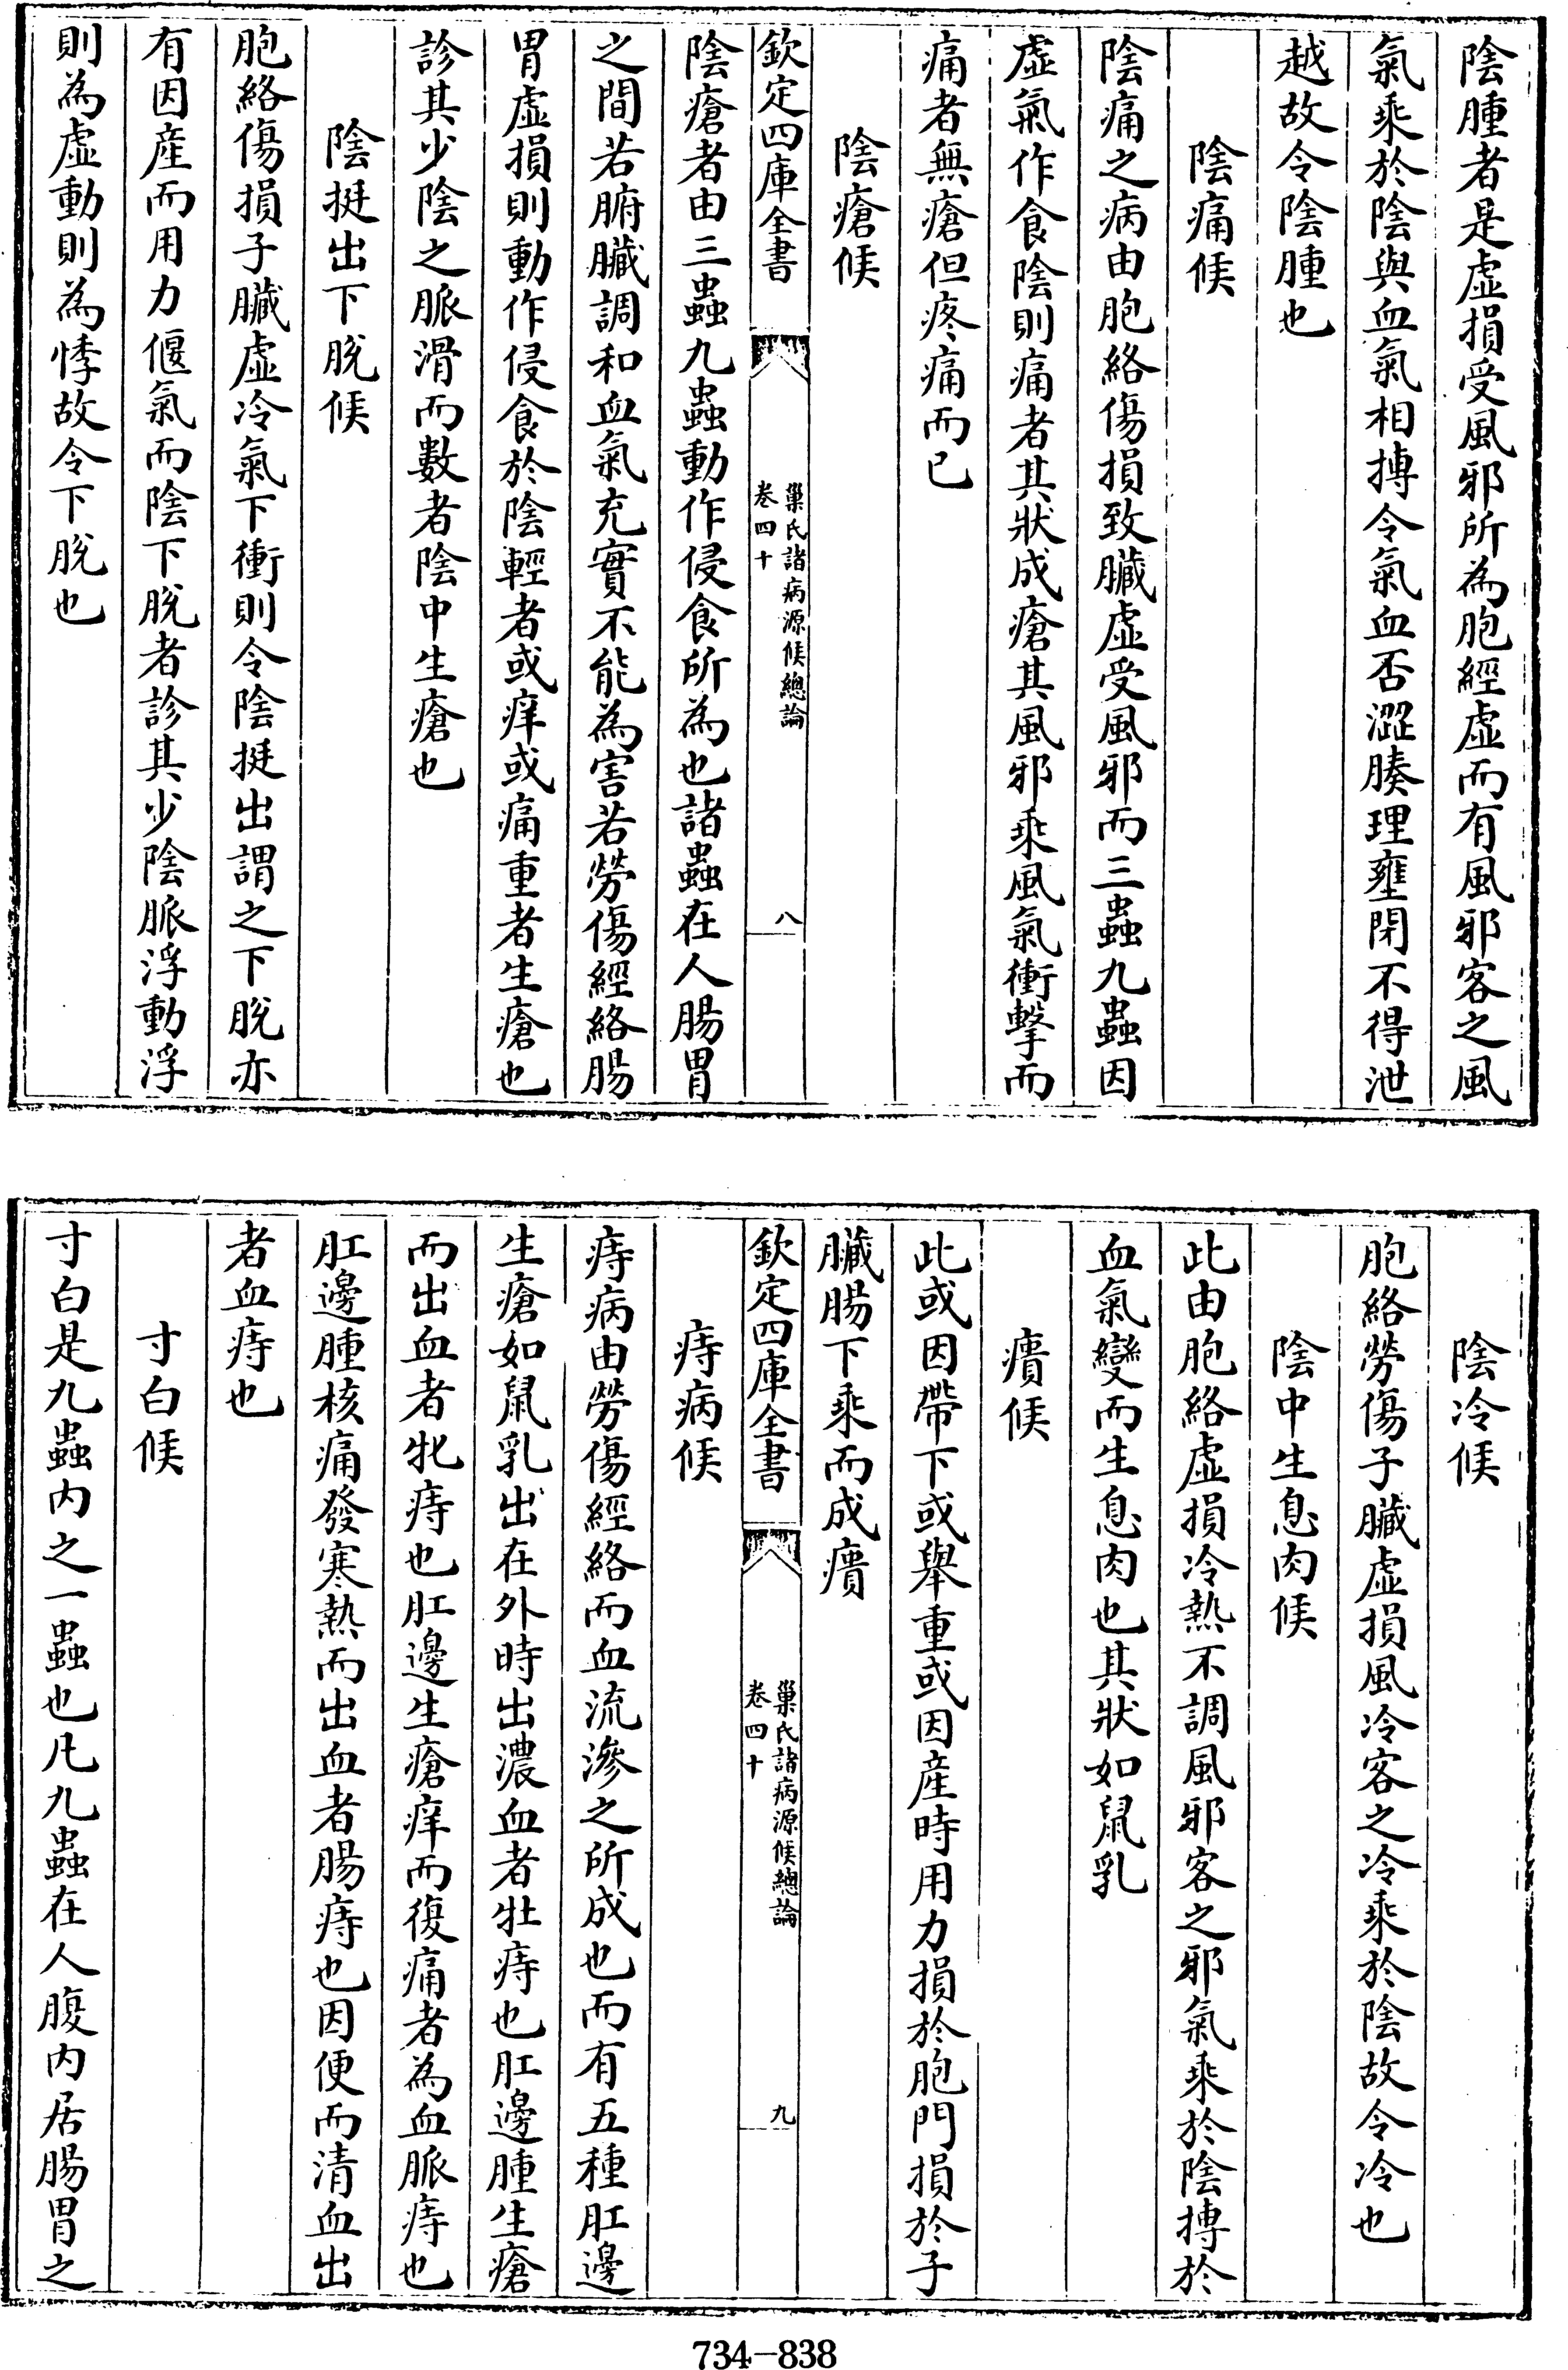 陰腫者是虛損受風邪所為胞經虛而有風邪客之風
氣乘於陰與血氣相搏令氣血否澀腠理壅閉不得泄
越故令陰腫也
陰痛候
陰痛之病由胞絡傷損致臟虛受風邪而三蟲九蟲因
虛氣作食陰則痛者其狀成瘡其風邪乘風氣衝擊而
痛者無瘡但疼痛而已
陰瘡候
欽定四庫全書
巢氏諸病源候總論
卷四十
八
陰瘡者由三蟲九蟲動作侵食所為也諸蟲在人腸胃
之間若腑臟調和血氣充實不能為害若勞傷經絡腸
胃虛損則動作侵食於陰輕者或痒或痛重者生瘡也
診其少陰之脈滑而數者陰中生瘡也
陰挺出下脫候
胞絡傷損子臟虛冷氣下衝則令陰挺出謂之下脫亦
有因產而用力偃氣而陰下脫者診其少陰脈浮動浮
則為虛動則為悸故令下脫也
陰冷候
胞絡勞傷子臟虛損風冷客之冷乘於陰故令冷也
陰中生息肉候
此由胞絡虛損冷熱不調風邪客之邪氣乘於陰搏於
血氣變而生息肉也其狀如鼠乳
㿉候
此或因帶下或舉重或因產時用力損於胞門損於子
臟腸下乘而成㿉
欽定四庫全書
巢氏諸病源候總論
卷四十
九
痔病候
痔病由勞傷經絡而血流滲之所成也而有五種肛邊
生瘡如鼠乳出在外時出濃血者牡痔也肛邊腫生瘡
而出血者牝痔也肛邊生瘡痒而復痛者為血脈痔也
肛邊腫核痛發寒熱而出血者腸痔也因便而清血出
者血痔也
寸白候
寸白是九蟲內之一蟲也凡九蟲在人腹內居腸胃之
734-838